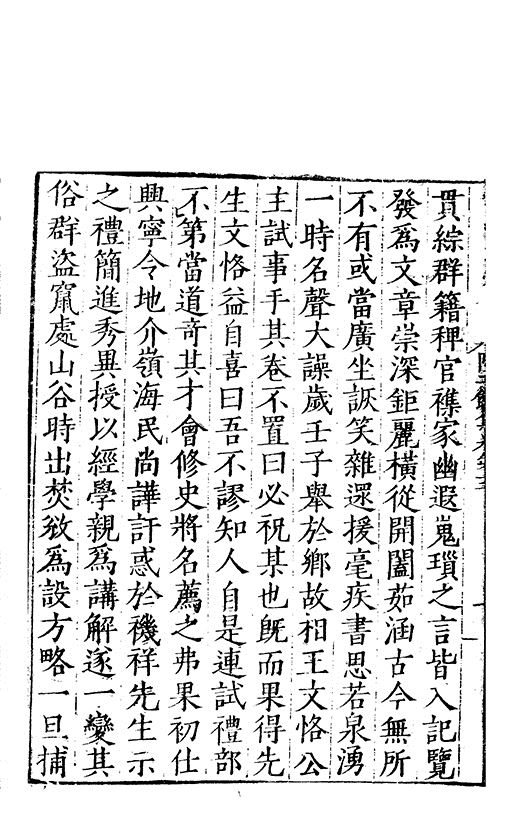 貫綜群籍稗官襍家幽遐嵬瑣之言皆入記覽
發爲文章崇深鉅麗橫從開闔茹涵古今無所
不有或當廣坐詼笑雜遝援毫疾書思若泉湧
一時名聲大譟歲壬子舉於鄉故相王文恪公
主試事手其卷不置曰必祝某也旣而果得先
生文恪益自喜曰吾不謬知人自是連試禮部
不第當道奇其才會修史將名薦之弗果初仕
興寧令地介嶺海民尚譁訐惑於禨祥先生示
之禮簡進秀異授以經學親爲講解遂一變其
俗群盜竄處山谷時出焚敓爲設方略一旦捕